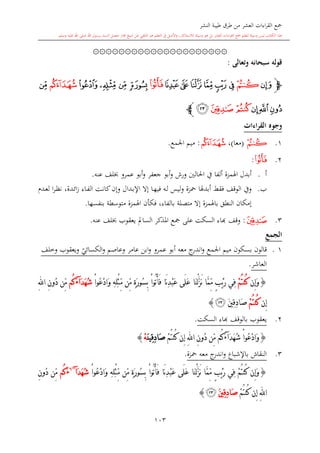 جمع القراءات العشر من طرق طيبة النشر
قوله سبحانه وتعالى :
﴿ وَإِن كُنتُمْ فِي رَيْبٍ مِّمَّا نَزَّلْنَا عَلَىٰ عَبْدِنَا فَأْتُوا بِسُورَةٍ مِّن مِّثْلِهِ وَادْعُوا شُهَدَاءَكُم مِّن
دُونِ اللَّهِ إِن كُنتُمْ صَادِقِينَ ﴿٢٣﴾ ﴾
وجوه القراءات
١. كُنتُمْ (معا)، شُهَدَاءَكُم : ميم الجمع.
٢. فَأْتُوا:
أ . أبدل الهمزة ألفا في الحالين ورش وأبو جعفر وأبو عمرو بخلف عنه.
ب. وفي الوقف فقط أبدلها حمزة وليس له فيهما إلا الإبدال وإن كانت الفاء زائدة، نظرا لعدم
إمكان النطق بالهمزة إلا متصلة بالفاء، فكأن الهمزة متوسطة بنفسها.
٣. صَادِقِينَ: وقف بهاء السكت على جمع المذكر السالم يعقوب بخلف عنه.
الجمع
١. قالون بسكون ميم الجمع واندرج معه أبو عمرو وابن عامر وعاصم والكسائي ويعقوب وخلف
العاشر.
﴿ وَإِن كُنتُمْ فِي رَيْبٍ مِّمَّا نَزَّلْنَا عَلَىٰ عَبْدِنَا فَأْتُوا بِسُورَةٍ مِّن مِّثْلِهِ وَادْعُوا شُهَدَاءَكُم مِّن دُونِ اللَّهِ
إِن كُنتُمْ صَادِقِينَ ﴿٢٣﴾ ﴾
٢. يعقوب بالوقف بهاء السكت.
﴿ وَادْعُوا شُهَدَاءَكُم مِّن دُونِ اللَّهِ إِن كُنتُمْ صَادِقِينَهْ ﴾
٣. النقاش بالإشباع واندرج معه حمزة.
﴿ وَإِن كُنتُمْ فِي رَيْبٍ مِّمَّا نَزَّلْنَا عَلَىٰ عَبْدِنَا فَأْتُوا بِسُورَةٍ مِّن مِّثْلِهِ وَادْعُوا شُهَدَاءَكُم مِّن دُونِ
اللَّهِ إِن كُنتُمْ صَادِقِينَ ﴿٢٣﴾ ﴾
١٠٣